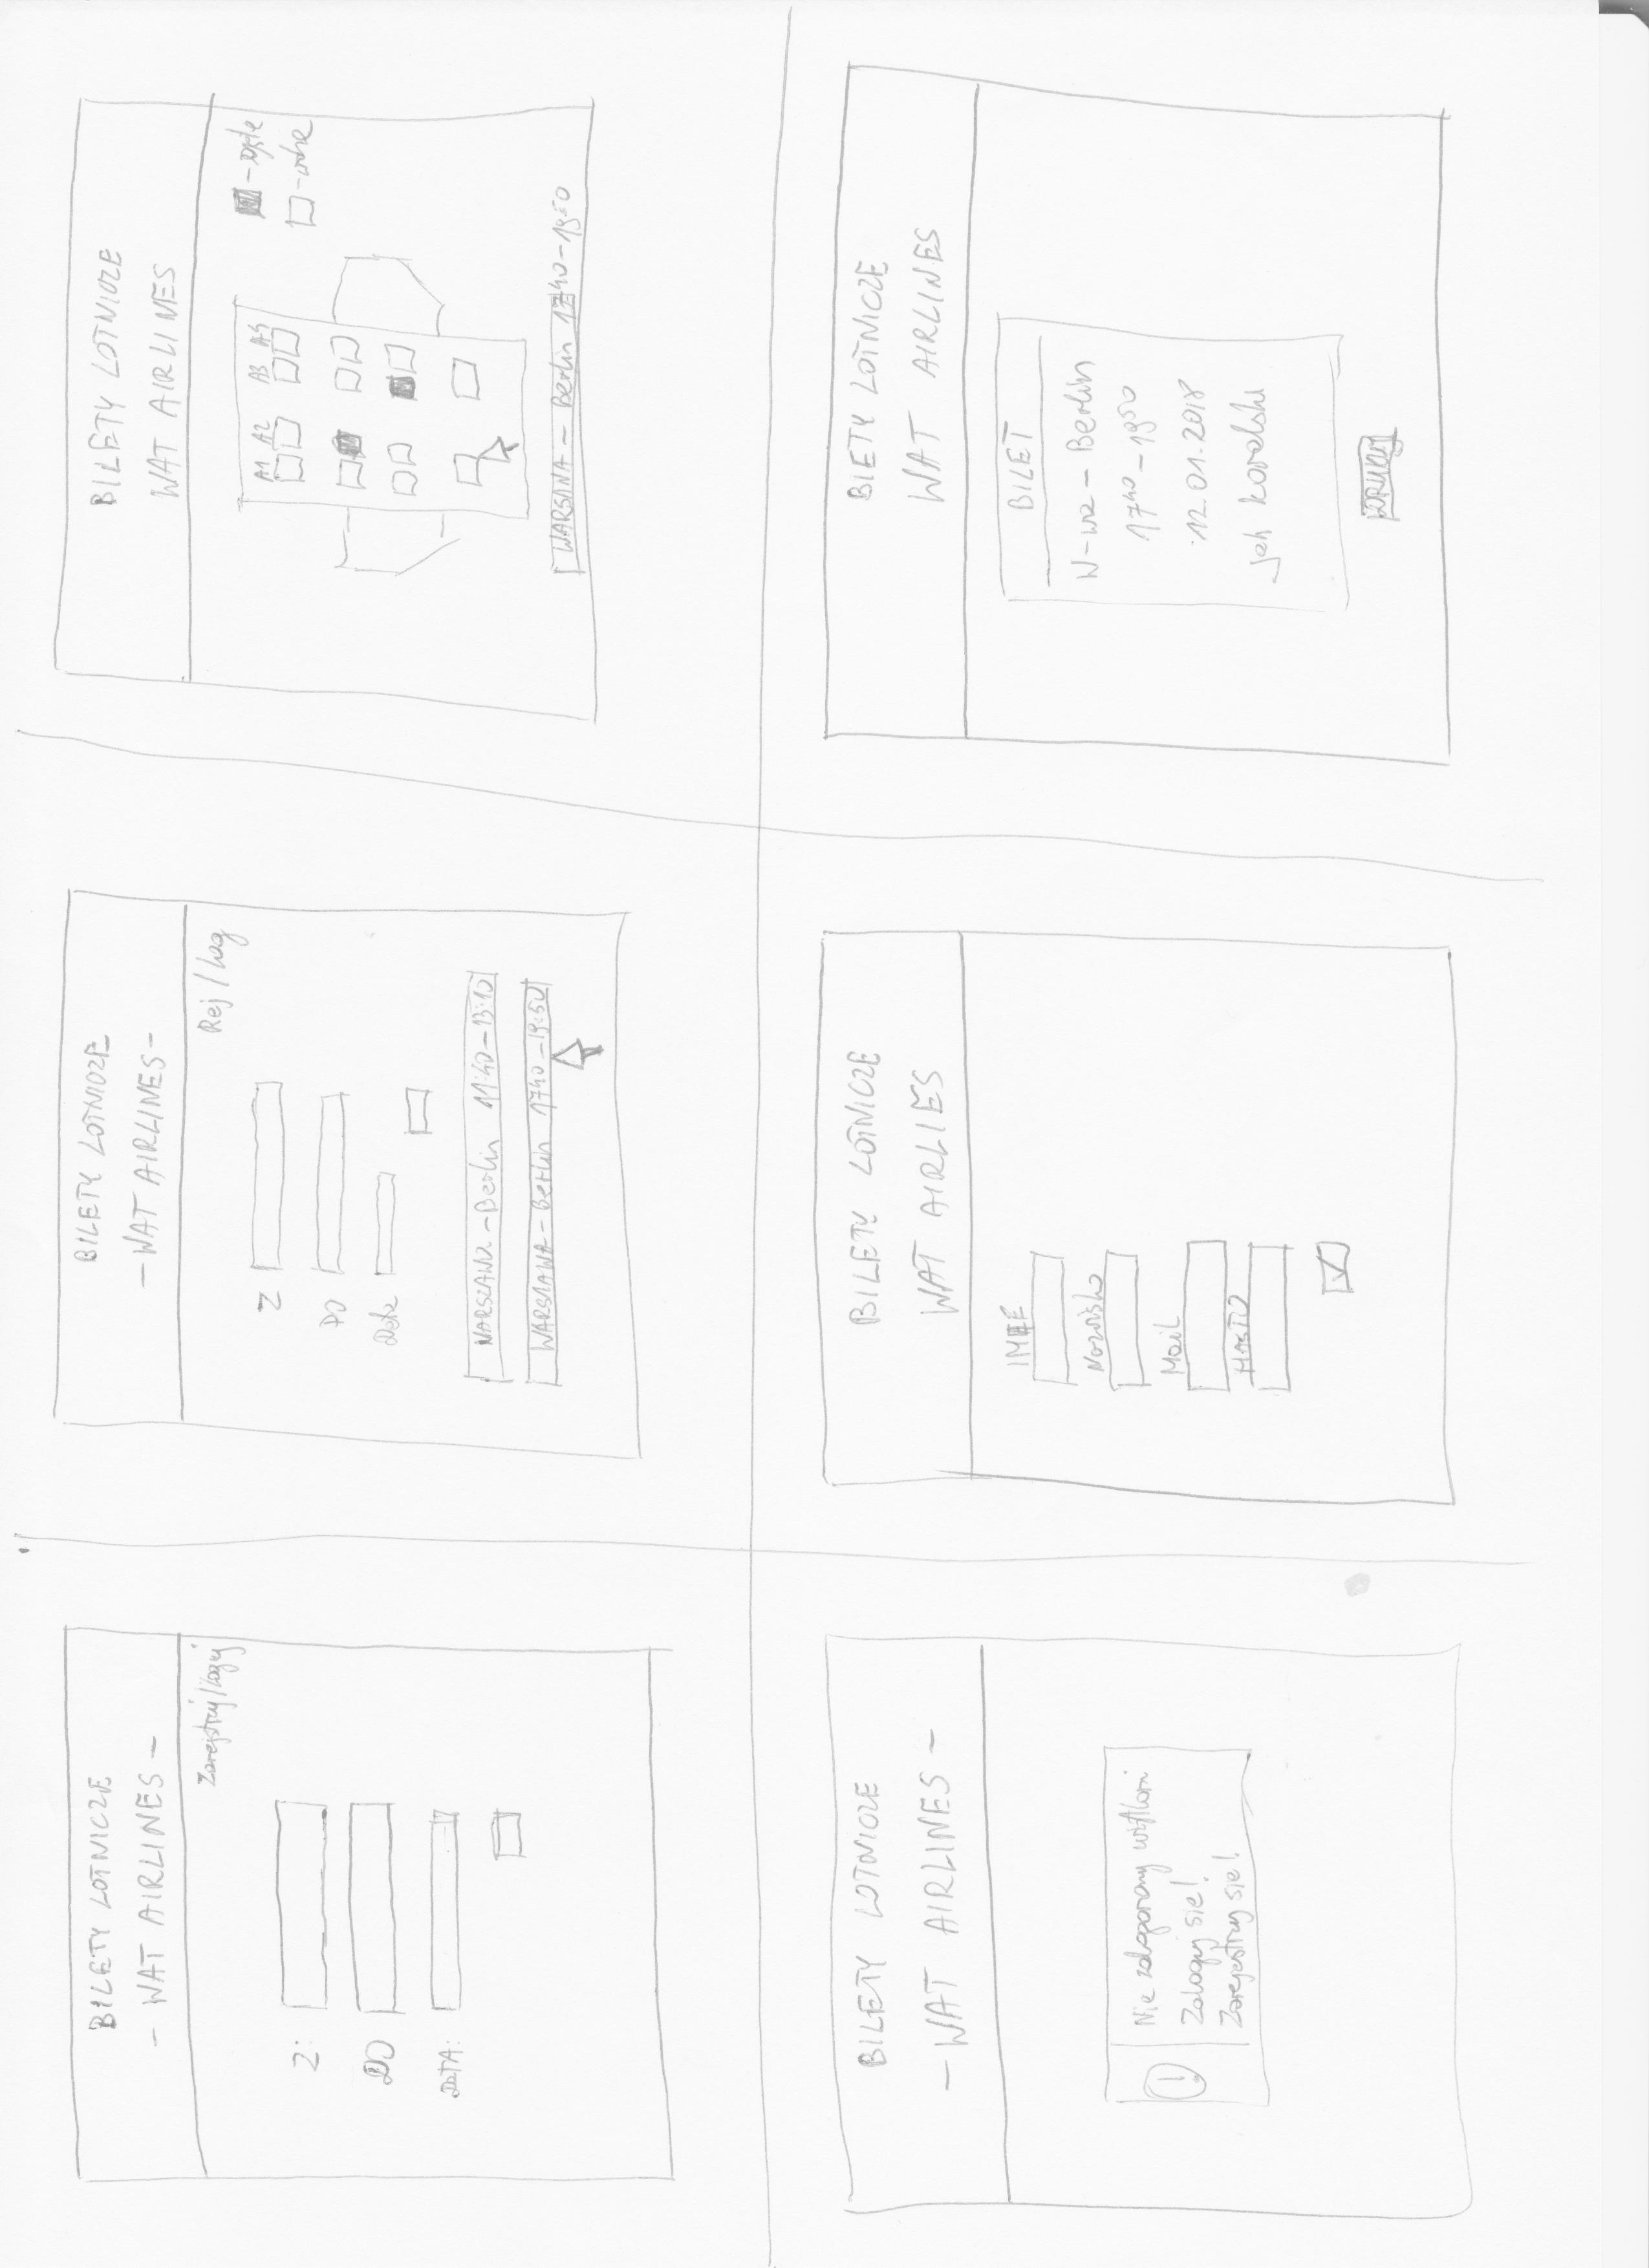 BILETY LOTNICZE
- WAT AIRLINES -
Zarejstruj/Loguj
Z:
DO
DATA:
BILETY LOTNICZE
- WAT AIRLINES -
Rej / Log
Z
DO
Data
WARSZAWA - Berlin 11:40 - 13:10
WARSZAWA - Berlin 17 40 - 19:50
BILETY LOTNICZE
WAT AIRLINES
A1 A2 A3 A4
- zajęte
- wolne
WARSAWA - Berlin 17 40 - 19 50
BILETY LOTNICZE
- WAT AIRLINES -
!
Nie zalogowany
Zaloguj sie!
Zarejestruj sie!
BILETY LOTNICZE
WAT AIRLIES
IMIE
Nazwisko
Mail
MIASTO
BIETY LOTNICZE
WAT AIRLINES
BILET
W-wa - Berlin
17 40 - 19 50
12.01.2018
Jan Kowalski
DRUKUJ